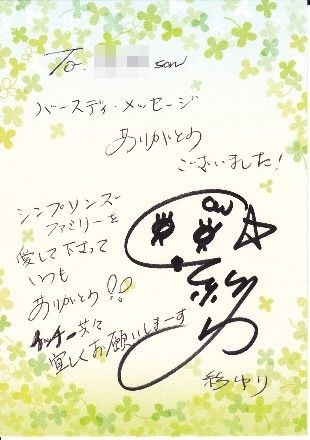 To. san
バースディ・メッセージ
ありがとう
ございました!
シンプソンズ
ファミリーを
愛して下さって
いつも
ありがとう!!
共々
宜しくお願いしまーす